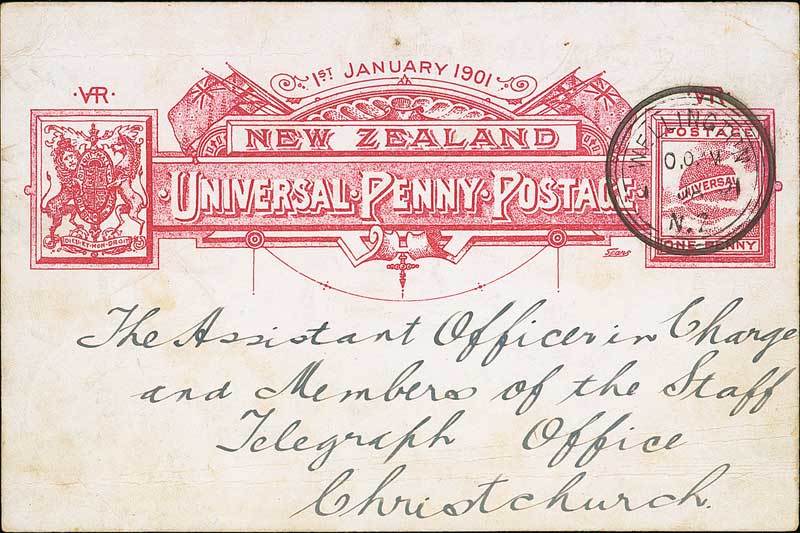 1ST JANUARY 1901
·VR·
VR·
NEW ZEALAND
UNIVERSAL·PENNY·POSTAGE
DIEU·ET·MON·DROIT
POSTAGE
UNIVERSAL
ONE·PENNY
WELLINGTON
N.Z
The Assistant Officer in Charge
and Members of the Staff
Telegraph Office
Christchurch.